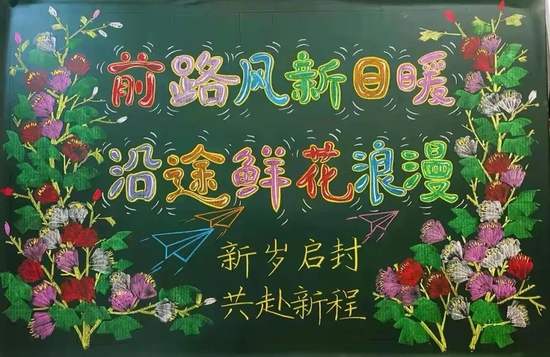 前路风新日暖
沿途鲜花浪漫
新岁启封
共赴新程